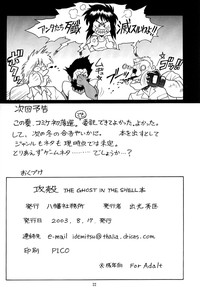 アンタたち全員
滅べばいいのよ!!
次回予告
この夏、コミケ初落選。委託できてよかった、よかった。
して、次の冬の合否やいかに。 本を出すとして
ジャンルもネタも現時点では未定。
とりあえずゲームネタ……でしょうか…?
おくづけ
攻殻 THE GHOST IN THE SHELL 本
発行 八幡社務所 発行者 出光英匡
発行日 2003. 8. 17. 発行
連絡先 e-mail idemitsu@thalia.dricas.com
印刷 PICO
For Adult